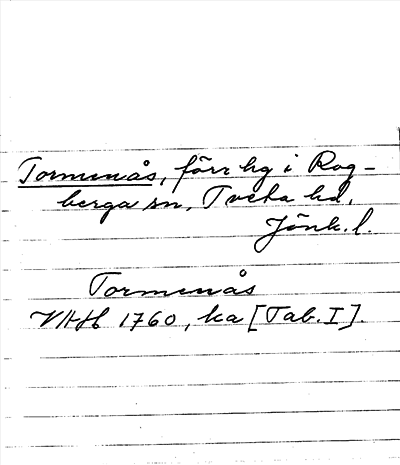 Tormenås, förr hg i Rog-
berga sn, Tveta hd,
Jönk. l.
Tormenås
VHH 1760, ka [Tab. I].